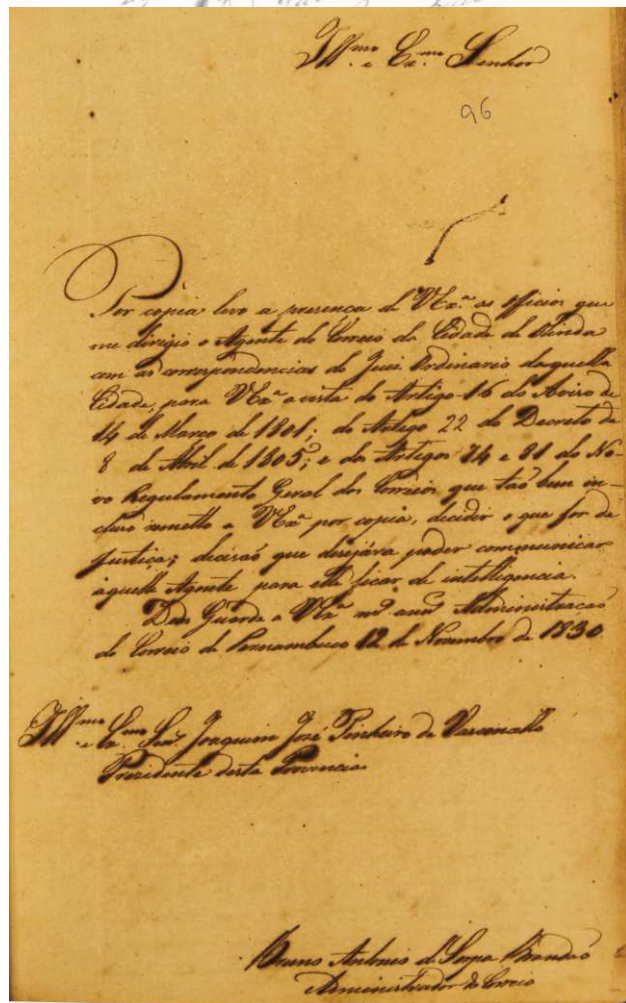 Illmo. e Exmo. Senhor
96
Por copia levo a presença de VExa. os officios que
me dirigio o Agente do Correio da Cidade de Olinda
com as correspondencias do Juiz Ordinario daquella
Cidade, para VExa a vista do Artigo 16 do Aviso de
14 de Março de 1801; do Artigo 22 do Decreto de
8 de Abril de 1805; e dos Artigos 74 e 81 do No-
vo Regulamento Geral dos Correios que taõ bem in-
cluso remetto a VExa por copia, decidir o que for de
Justiça; decisaõ que desejára poder communicar
àquelle Agente para elle ficar de intelligencia.
Deos Guarde a VExa ms. ans. Administraçaõ
do Correio de Pernambuco 12 de Novembro de 1830
Illmo. e Exmo. Senr. Joaquim José Pinheiro de Vasconcellos
Prezidente desta Provincia
Bruno Antonio de Serpa Brandaõ
Administrador do Correio